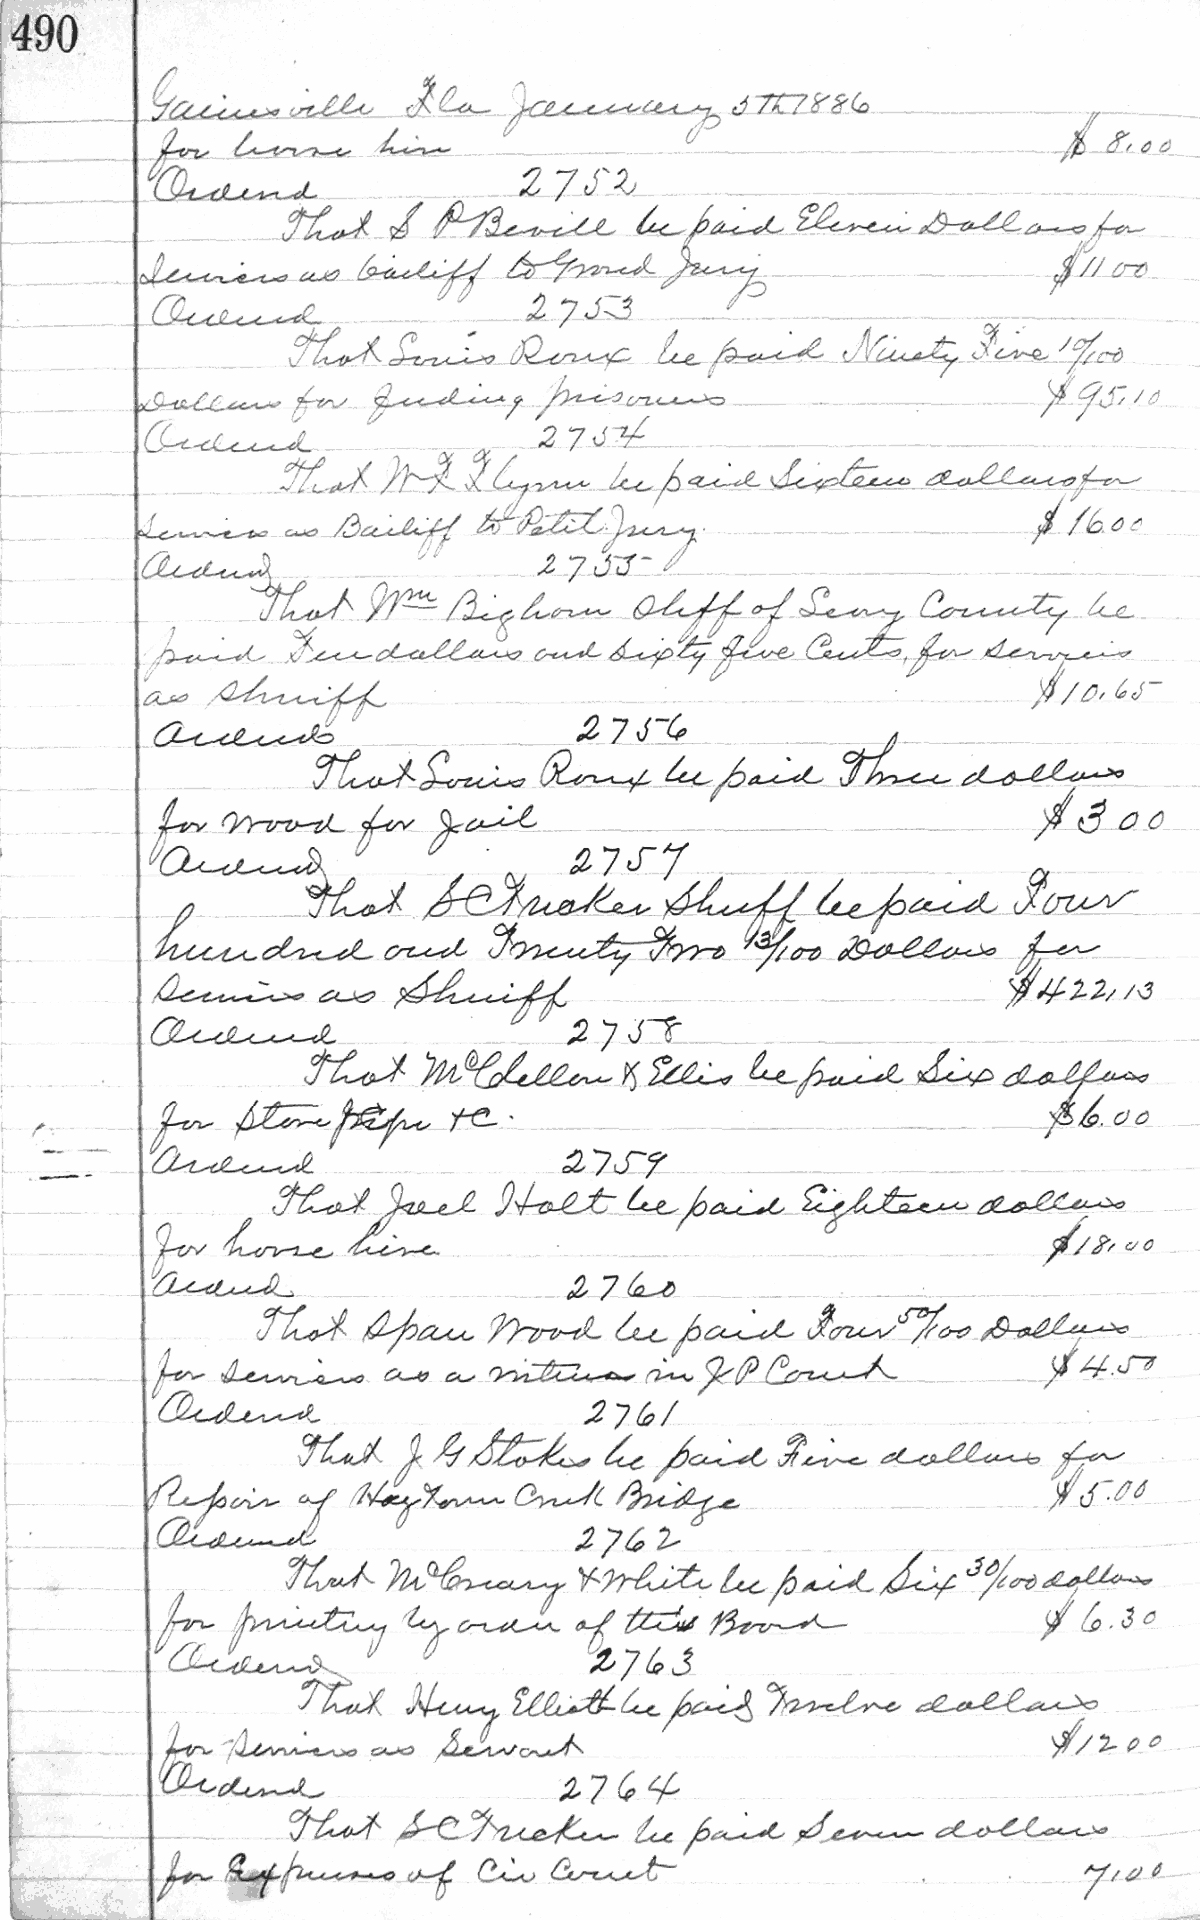 490
Gainesville Fla January 5th 1886
for horse hire $8.00
Ordered 2752
That S P Bevill be paid Eleven Dollars for
Services as bailiff to Grand Jury $11 00
Ordered 2753
That Louis Roux be paid Ninety Five 10/100
Dollars for feeding prisoners $95.10
Ordered 2754
That W F Flynn be paid Sixteen dollars for
services as Bailiff to Petit Jury. $16.00
Ordered 2755
That Wm Bighorn Shff of Levy County be
paid Ten dollars and Sixty five Cents, for Services
as Sheriff $10.65
Ordered 2756
That Louis Roux be paid Three dollars
for wood for Jail $3 00
Ordered 2757
That S C Tucker Sheriff be paid Four
hundred and Twenty Two 13/100 Dollars for
Services as Sheriff $422.13
Ordered 2758
That McClellan & Ellis be paid Six dollars
for Stove pipe &C. $6.00
Ordered 2759
That Joel Holt be paid Eighteen dollars
for horse hire $18.00
Ordered 2760
That Span Wood be paid Four 50/100 Dollars
for services as a witness in J P Court $4.50
Ordered 2761
That J G Stokes be paid Five dollars for
Repair of Hogtown Creek Bridge $5.00
Ordered 2762
That McCreary & White be paid Six 30/100 dollars
for printing by order of this Board $6.30
Ordered 2763
That Henry Elliott be paid Twelve dollars
for services as Servant $12 00
Ordered 2764
That S C Tucker be paid Seven dollars
for Expenses of Cir Court 7.00